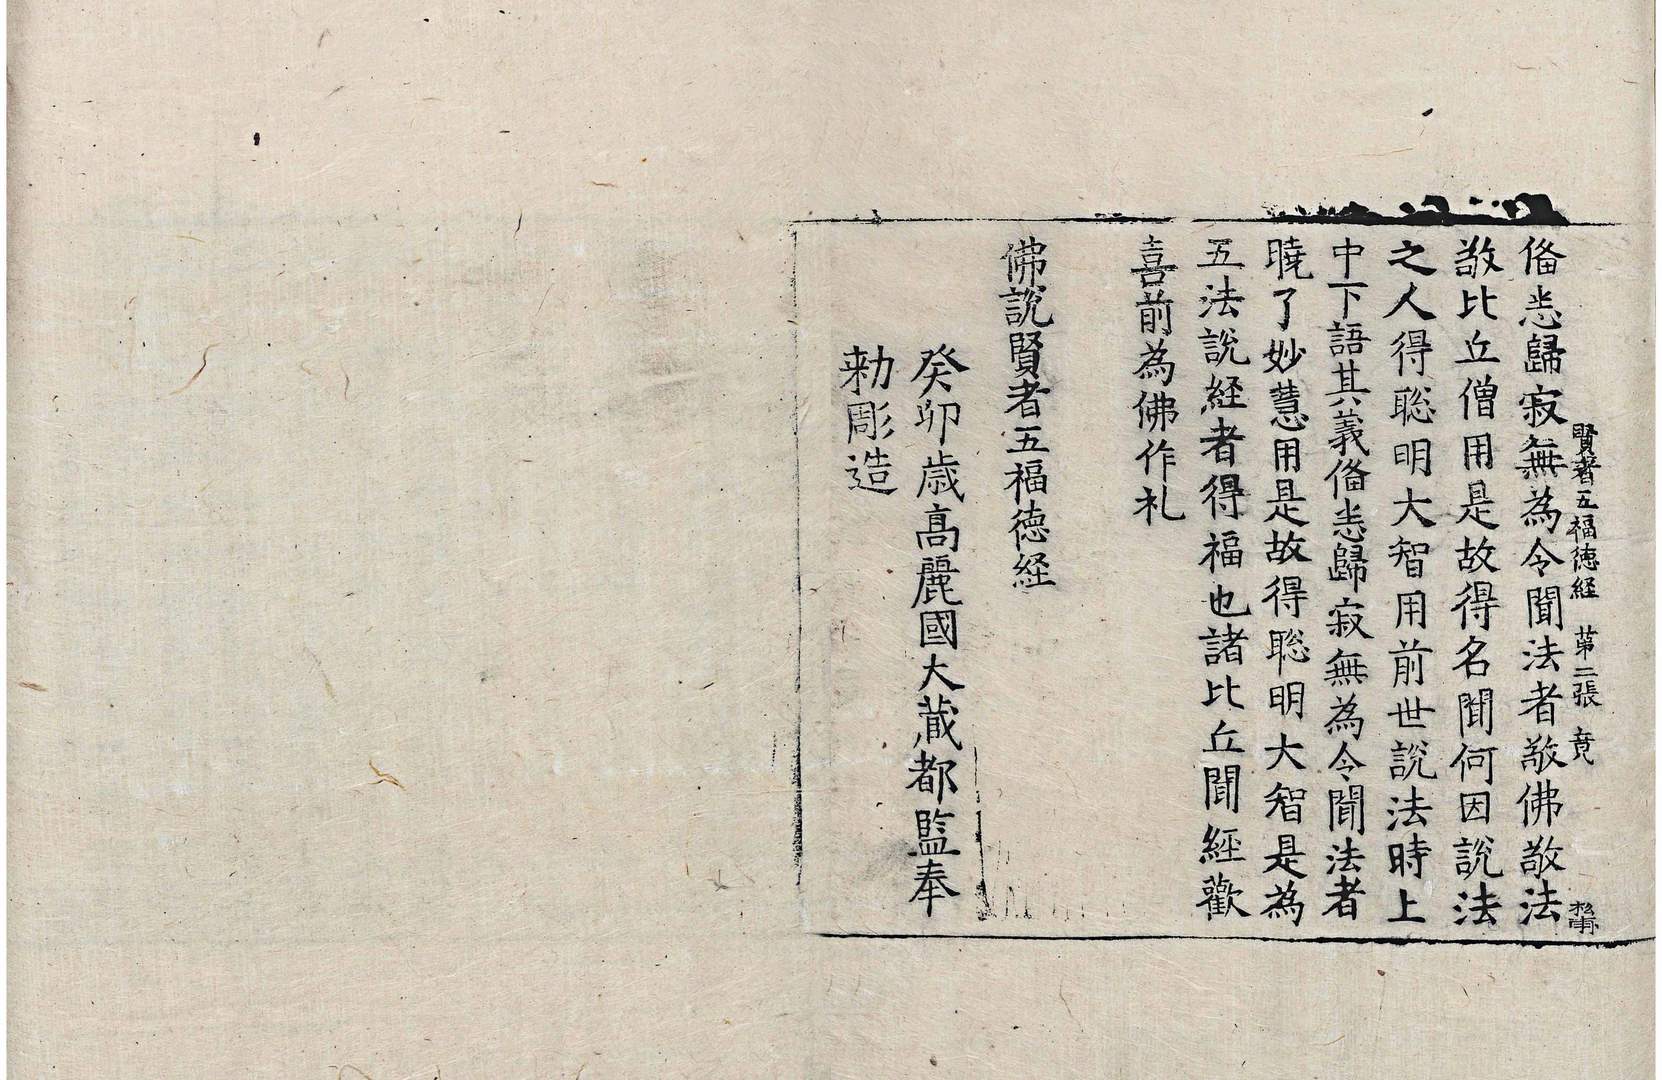 賢者五福德経 第二張 竟
俻悉歸寂無為令聞法者敬佛敬法
敬比丘僧用是故得名聞何因說法
之人得聡明大智用前世說法時上
中下語其義俻悉歸寂無為令聞法者
曉了妙慧用是故得聡明大智是為
五法說経者得福也諸比丘聞經歡
喜前為佛作礼
佛說賢者五福德経
癸卯歳高麗國大藏都監奉
勅彫造